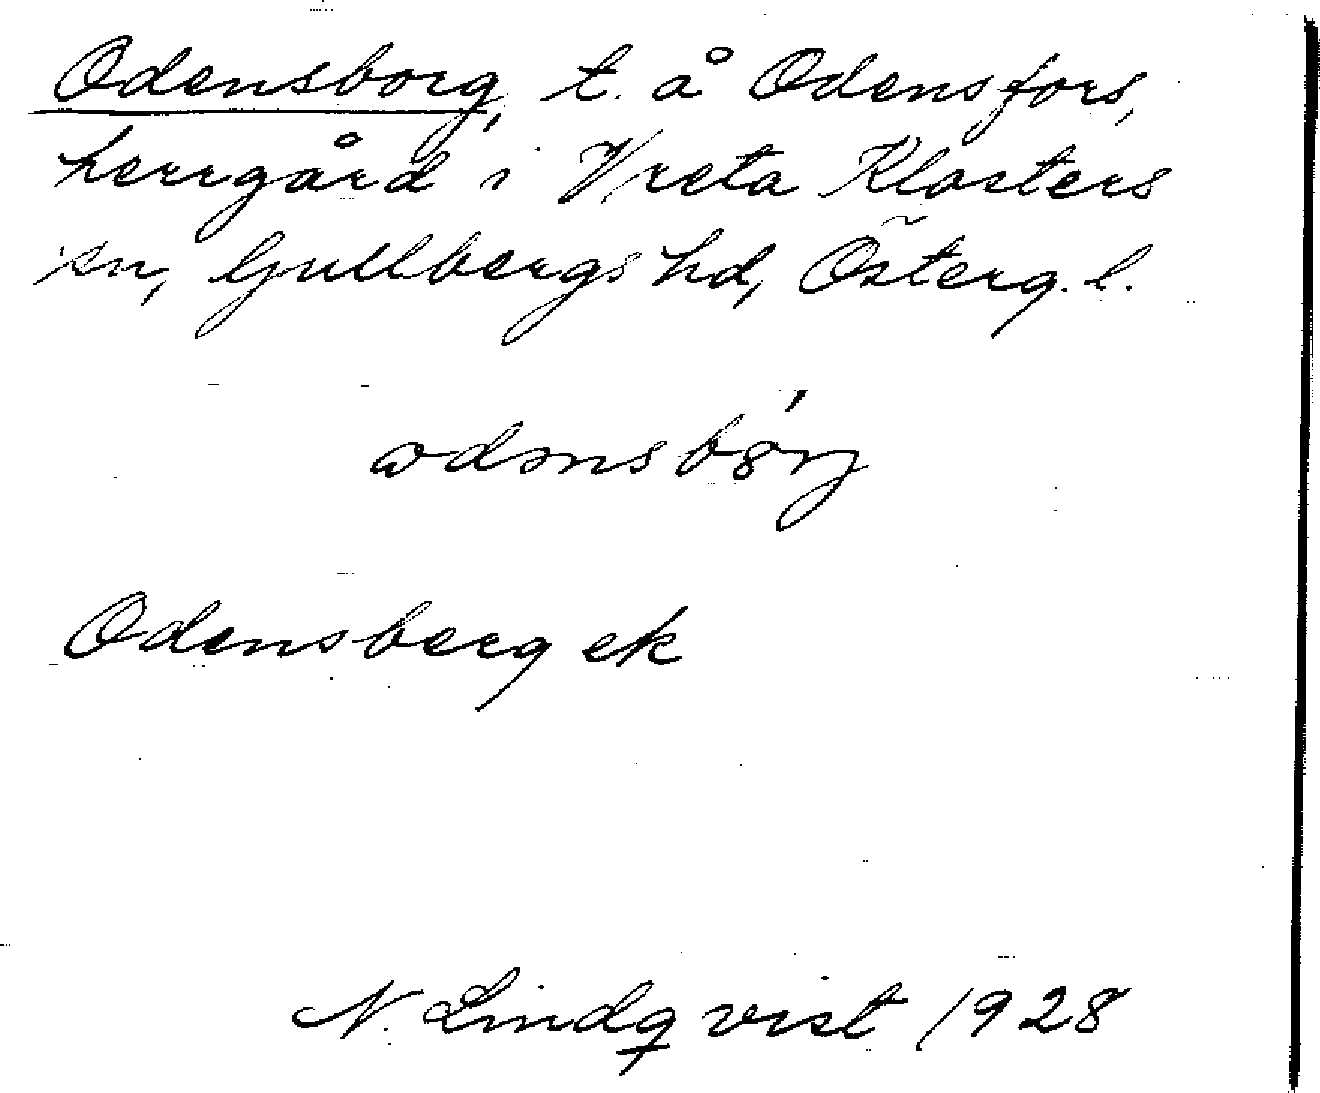 Odensborg, t. å Odensfors,
herrgård i Vreta Klosters
sn, Gullbergs hd, Österg. l.
Odensberg ek
N. Lindqvist 1928